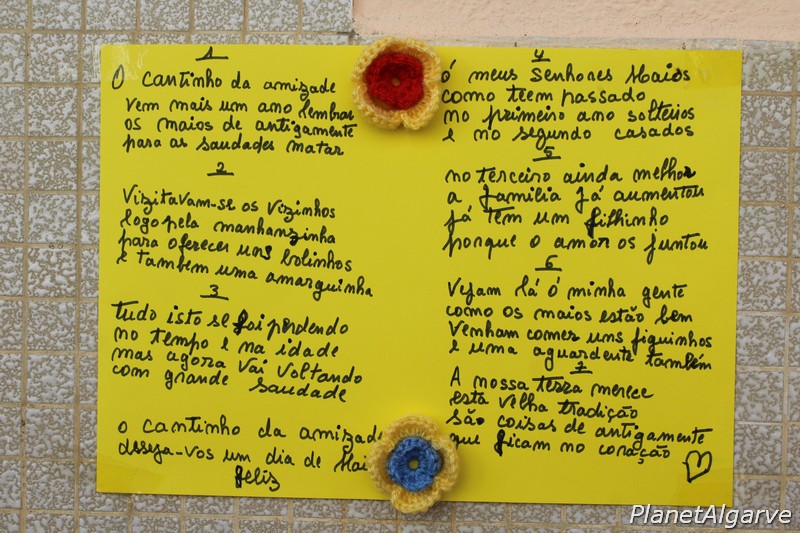 1
O cantinho da amizade
vem mais um ano lembrar
os maios de antigamente
para as saudades matar
2
Vizitavam-se os vizinhos
logo pela manhanzinha
para oferecer uns bolinhos
e tambem uma amarguinha
3
tudo isto se foi perdendo
no tempo e na idade
mas agora vai voltando
com grande saudade
o cantinho da amizade
desseja-vos um dia de Mai
feliz
4
ó meus senhores Maios
como teem passado
no primeiro ano solteiros
e no segundo casados
5
no terceiro ainda melhor
a familia já aumentou
já tem um filhinho
porque o amor os juntou
6
Vejam lá ó minha gente
como os maios estão bem
Venham comer uns figuinhos
e uma aguardente também
7
A nossa terra merece
esta velha tradição
são coisas de antigamente
que ficam no coração
PlanetAlgarve